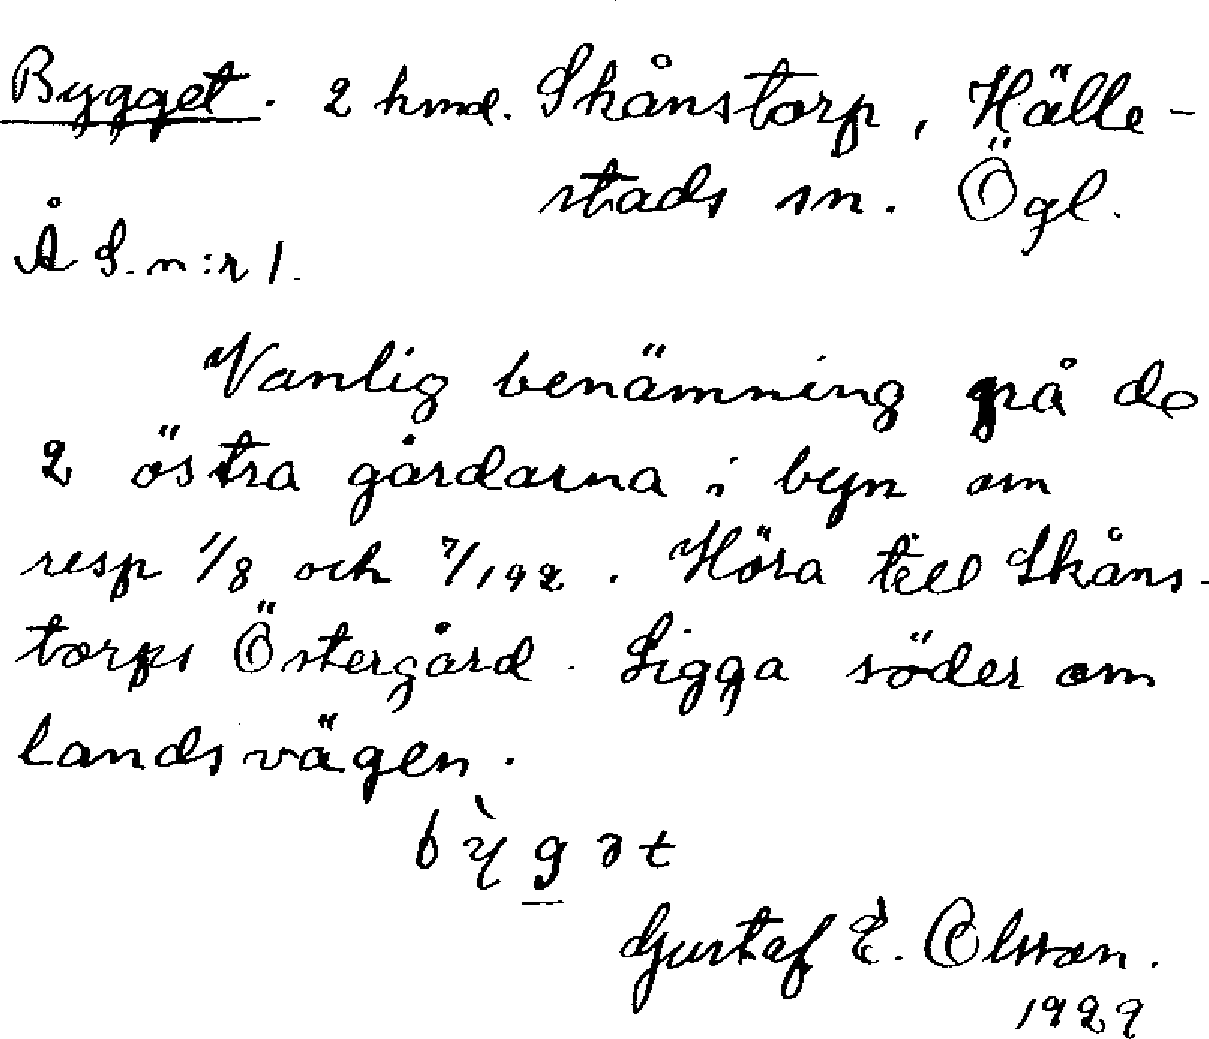 Bygget. 2 hmd. Skånstorp, Hälle-
stads sn. Ögl.
Å S. n:r 1.
Vanlig benämning på de
2 östra gårdarna i byn om
resp 1/8 och 7/192. Höra till Skåns-
torps Östergård. Ligga söder om
landsvägen.
bỳg̲ət
Gustaf E. Olsson.
1929